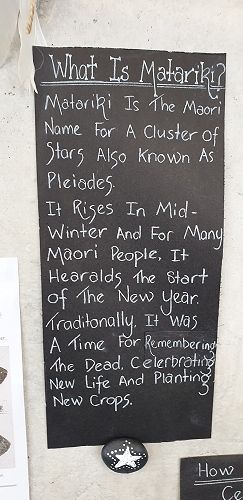 What Is Matariki?
Matariki Is The Maori
Name For A Cluster of
Stars Also Known As
Pleiades.
It Rises In Mid-
Winter And For Many
Māori People, It
Hearalds The Start
of The New Year.
Traditonally, It Was
A Time For Remembering
The Dead, Celerbrating
New Life And Planting
New Crops.
How
Ce